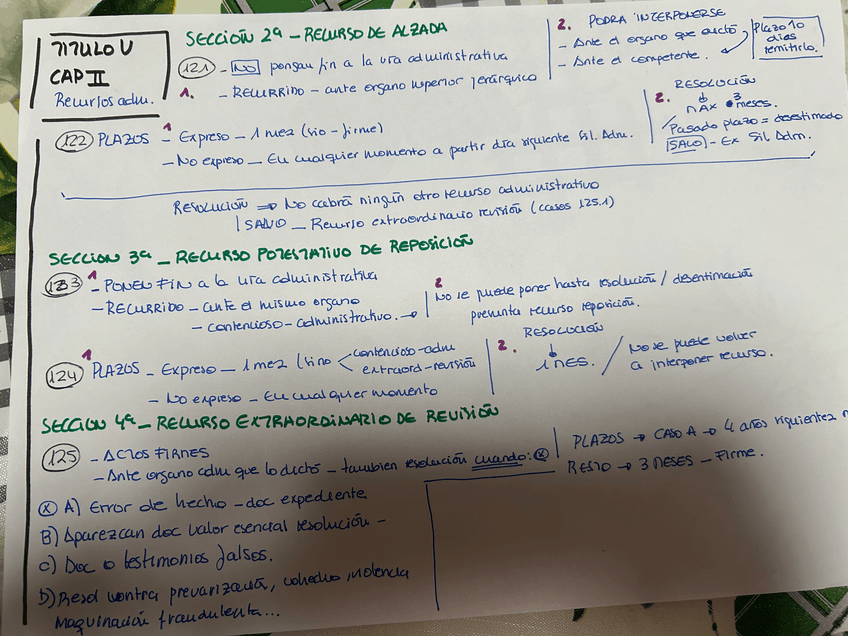 TITULO V
CAP II
Recursos adm.
SECCIÓN 2ª - RECURSO DE ALZADA
121 - NO pongan fin a la vía administrativa
1. - RECURRIDO - ante organo superior jerárquico
2. PODRA INTERPONERSE
- Ante el organo que dictó
- Ante el competente.
Plazo 10
dias
remitirlo.
122 PLAZOS 1 - Expreso - 1 mes (sio - firme)
- No expreso - En cualquier momento a partir día siguiente Sil. Adm.
2. RESOLUCIÓN
MAX 3 meses.
Pasado plazo = desestimado
SALVO - Ex Sil Adm.
RESOLUCIÓN => No cabrá ningún otro recurso administrativo
SALVO - Recurso extraordinario revisión (casos 125.1)
SECCION 3ª - RECURSO POTESTATIVO DE REPOSICIÓN
123 1 - PONEN FIN a la vía administrativa
- RECURRIDO - ante el mismo organo
- contencioso - administrativo. →
2 No se puede poner hasta resolución / desentimación
presunta recurso reposición.
124 1 PLAZOS - Expreso - 1 mes (sino < contencioso-adm
extraord-revisión
- No expreso - En cualquier momento
2. RESOLUCIÓN
1 MES. / No se puede volver
a interponer recurso.
SECCION 4ª - RECURSO EXTRAORDINARIO DE REVISIÓN
125 - ACTOS FIRMES
- Ante organo adm que lo dictó - tambien resolución cuando: x
PLAZOS → CASO A → 4 años siguientes
RESTO → 3 MESES - Firme.
x A) Error de hecho - doc expediente
B) Aparezcan doc valor esencial resolución -
C) Doc o testimonios falsos.
D) Resol contra prevarización, cohecho, violencia
Maquinación fraudulenta...